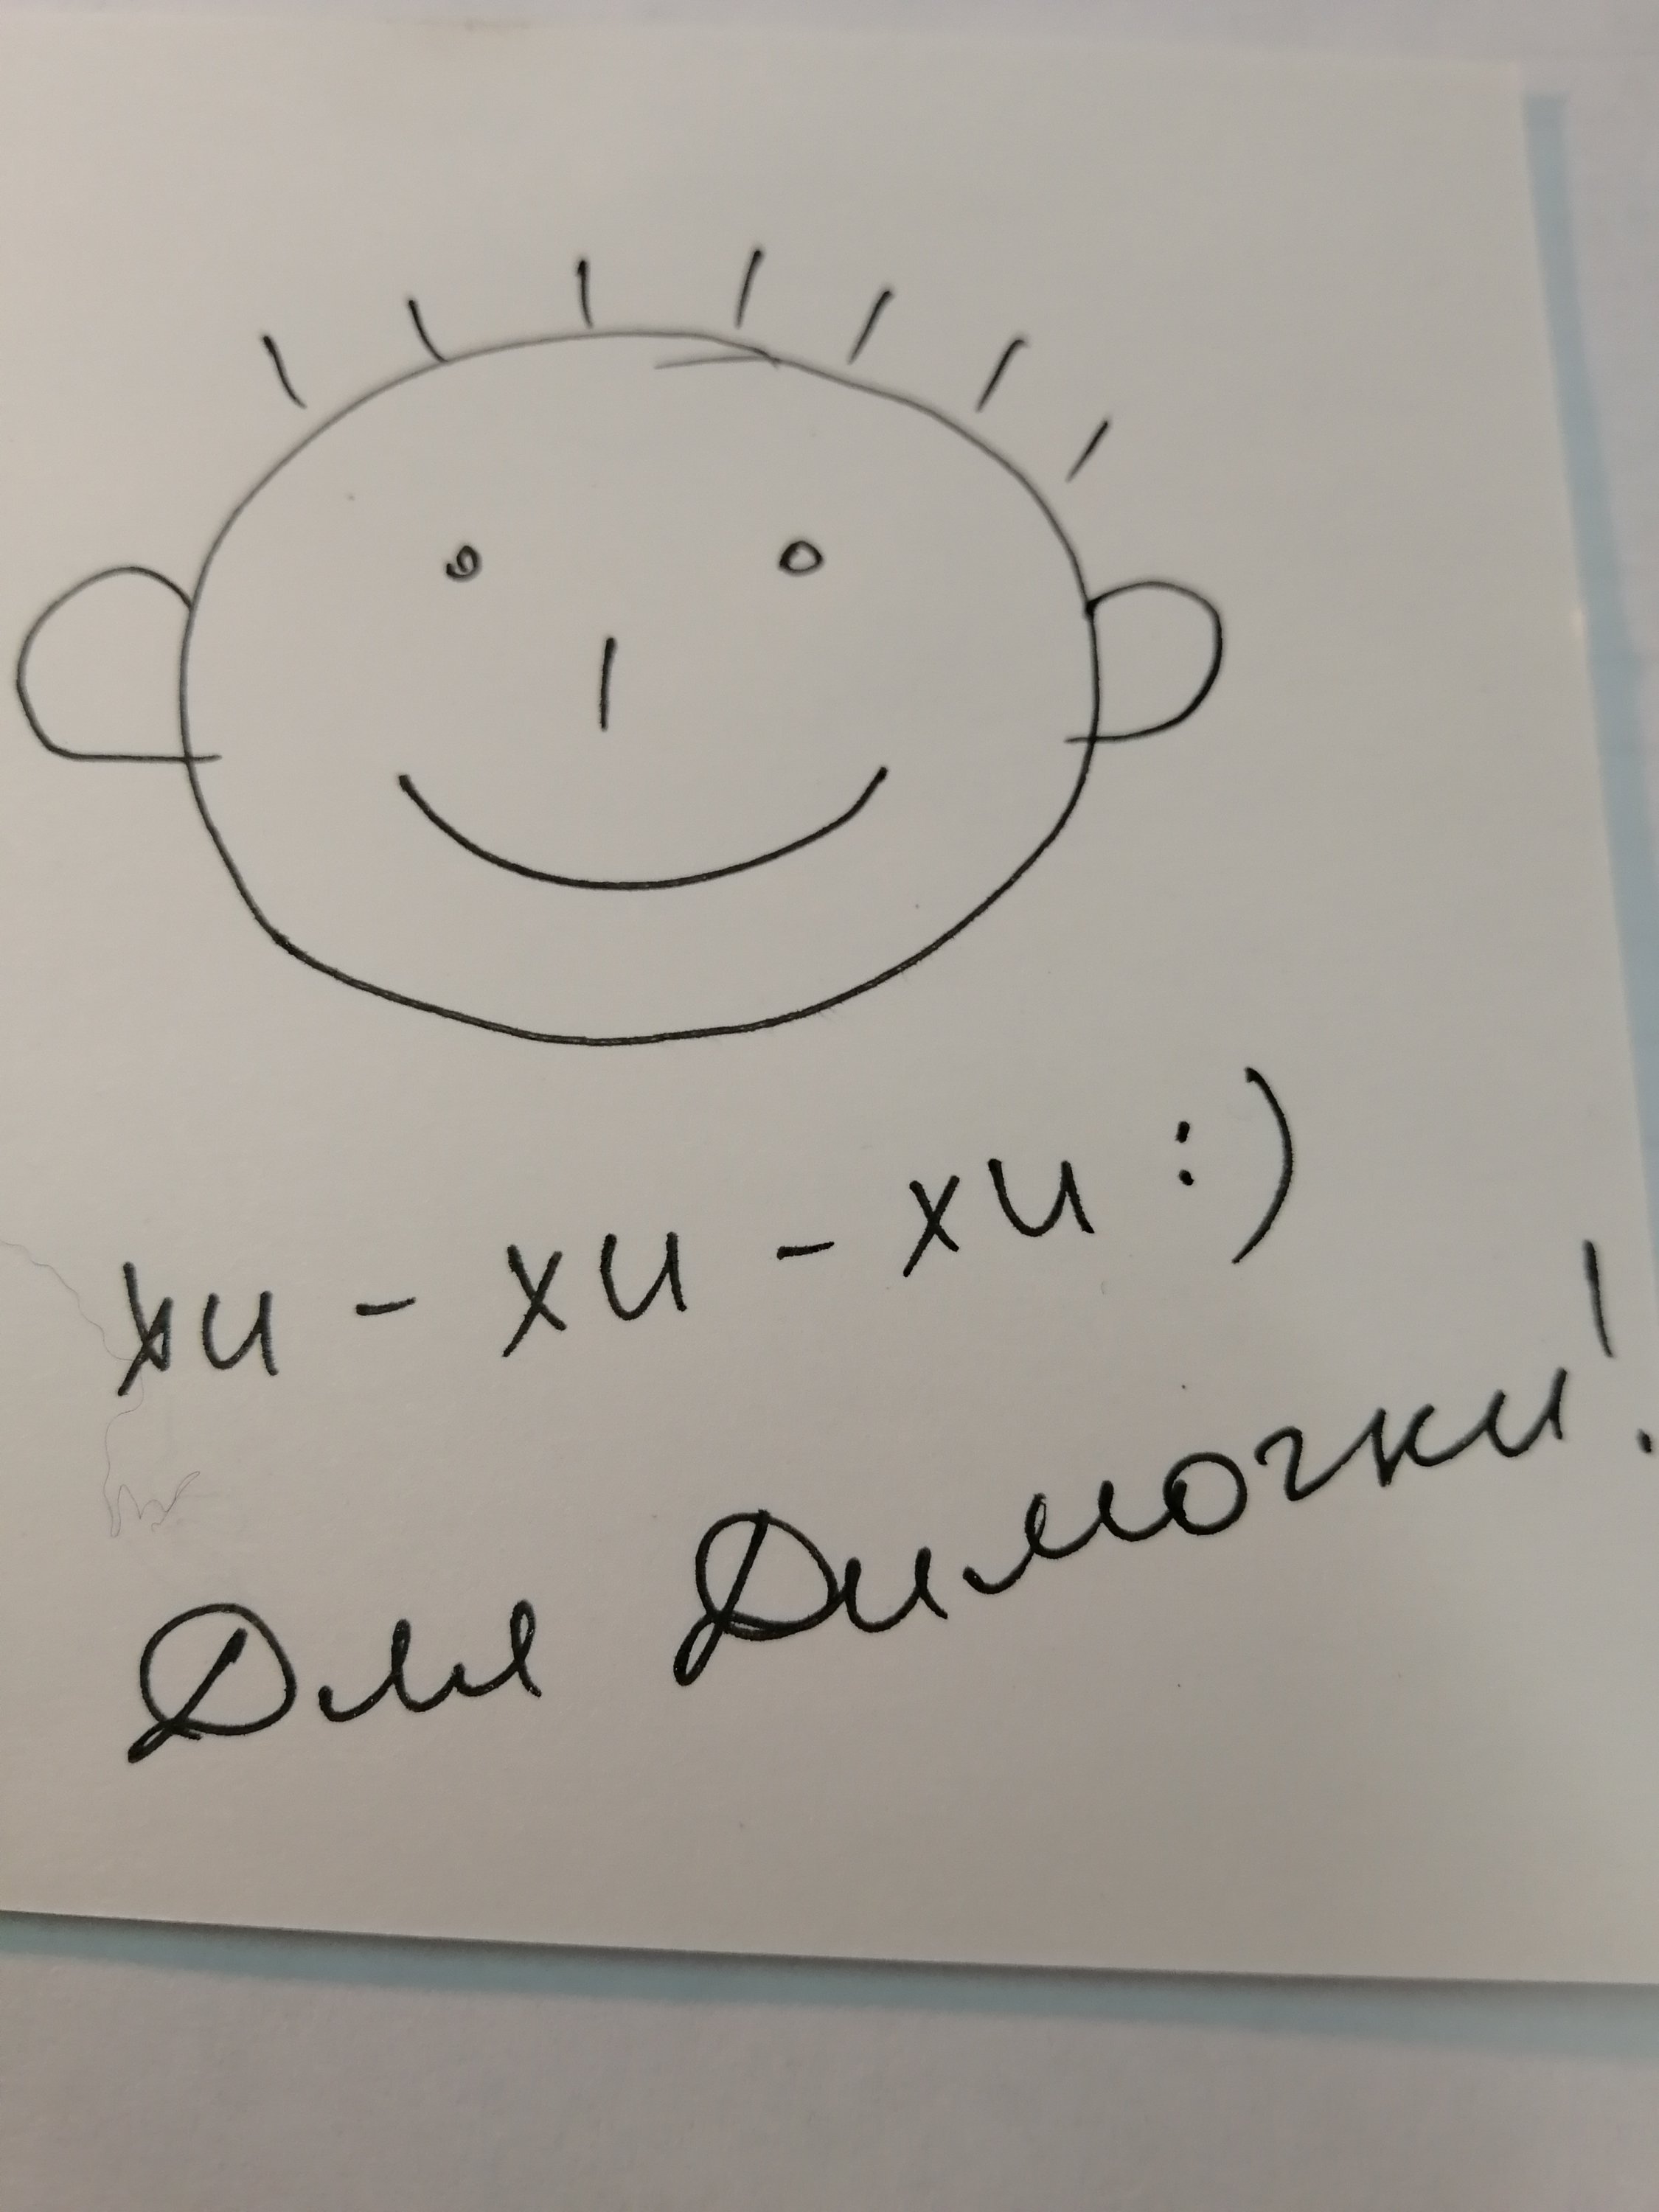 хи - хи - хи :)
Для Димочки!